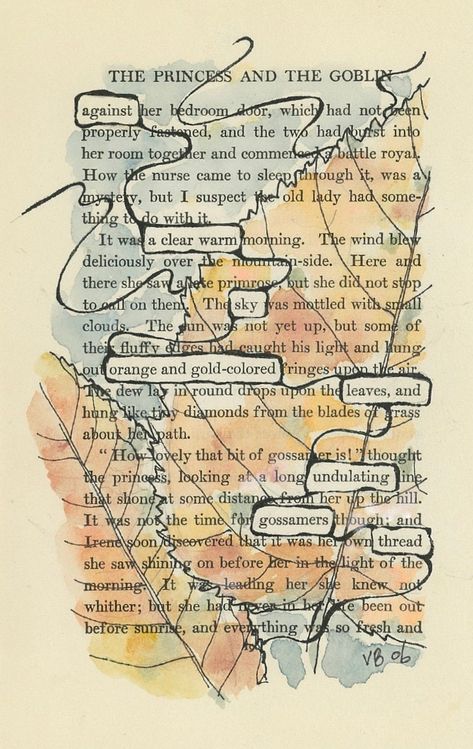 THE PRINCESS AND THE GOBLIN
against her bedroom door, which had not been
properly fastened, and the two had burst into
her room together and commenced a battle royal.
How the nurse came to sleep through it, was a
mystery, but I suspect the old lady had some-
thing to do with it.
It was a clear warm morning. The wind blew
deliciously over the mountain-side. Here and
there she saw a late primrose, but she did not stop
to call on them. The sky was mottled with small
clouds. The sun was not yet up, but some of
their fluffy edges had caught his light and hung
out orange and gold-colored fringes upon the air.
The dew lay in round drops upon the leaves, and
hung like tiny diamonds from the blades of grass
about her path.
" How lovely that bit of gossamer is! " thought
the princess, looking at a long undulating line
that shone at some distance from her up the hill.
It was not the time for gossamers though; and
Irene soon discovered that it was her own thread
she saw shining on before her in the light of the
morning. It was leading her she knew not
whither; but she had never in her life been out
before sunrise, and everything was so fresh and
VB 06